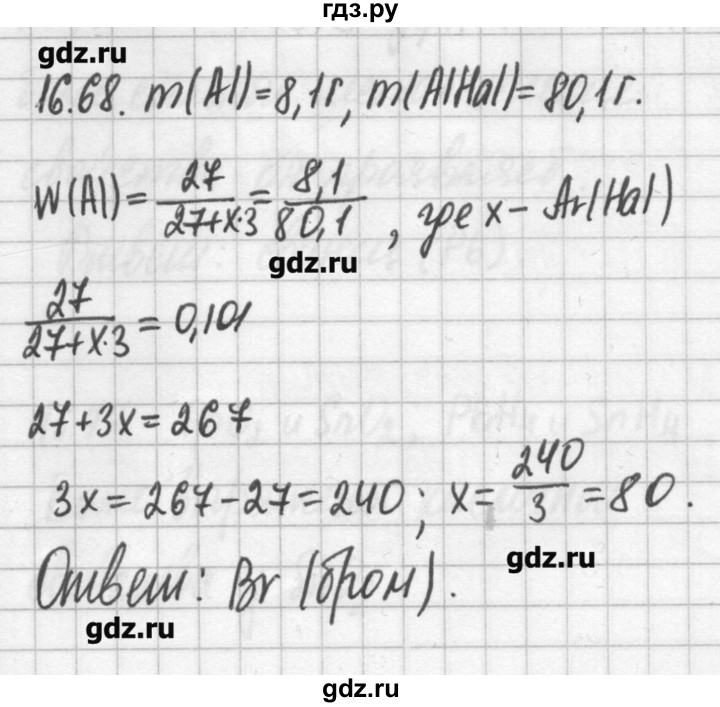 гдз.ру
gdz.ru
16.68. m(Al)=8,1г, m(AlHal)=80,1г.
W(Al)= 27/(27+x·3) = 8,1/80,1, где x – Ar(Hal)
gdz.ru
27/(27+x·3) = 0,101
27+3x=267
3x=267-27=240; x= 240/3 =80.
gdz.ru
Ответ: Br (бром).
gdz.ru
gdz.ru